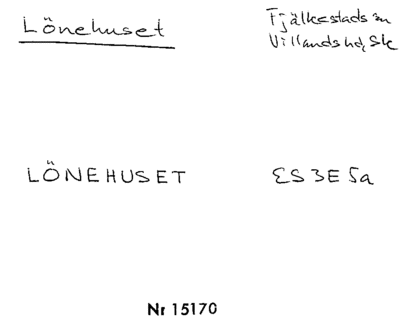 Lönehuset
Fjälkestads sn
Villands hd, Sk
LÖNEHUSET
ES 3E 5a
Nr 15170